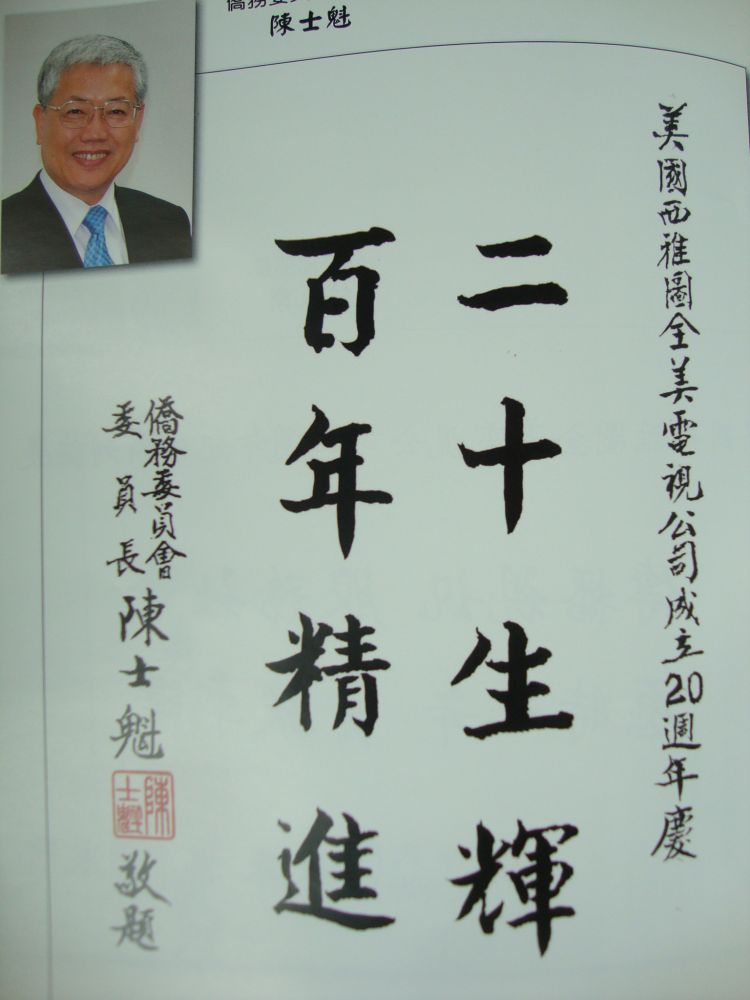 陳士魁
美國西雅圖全美電視公司成立20週年慶
二十生輝
百年精進
僑務委員會
委員長陳士魁
陳士魁
敬題